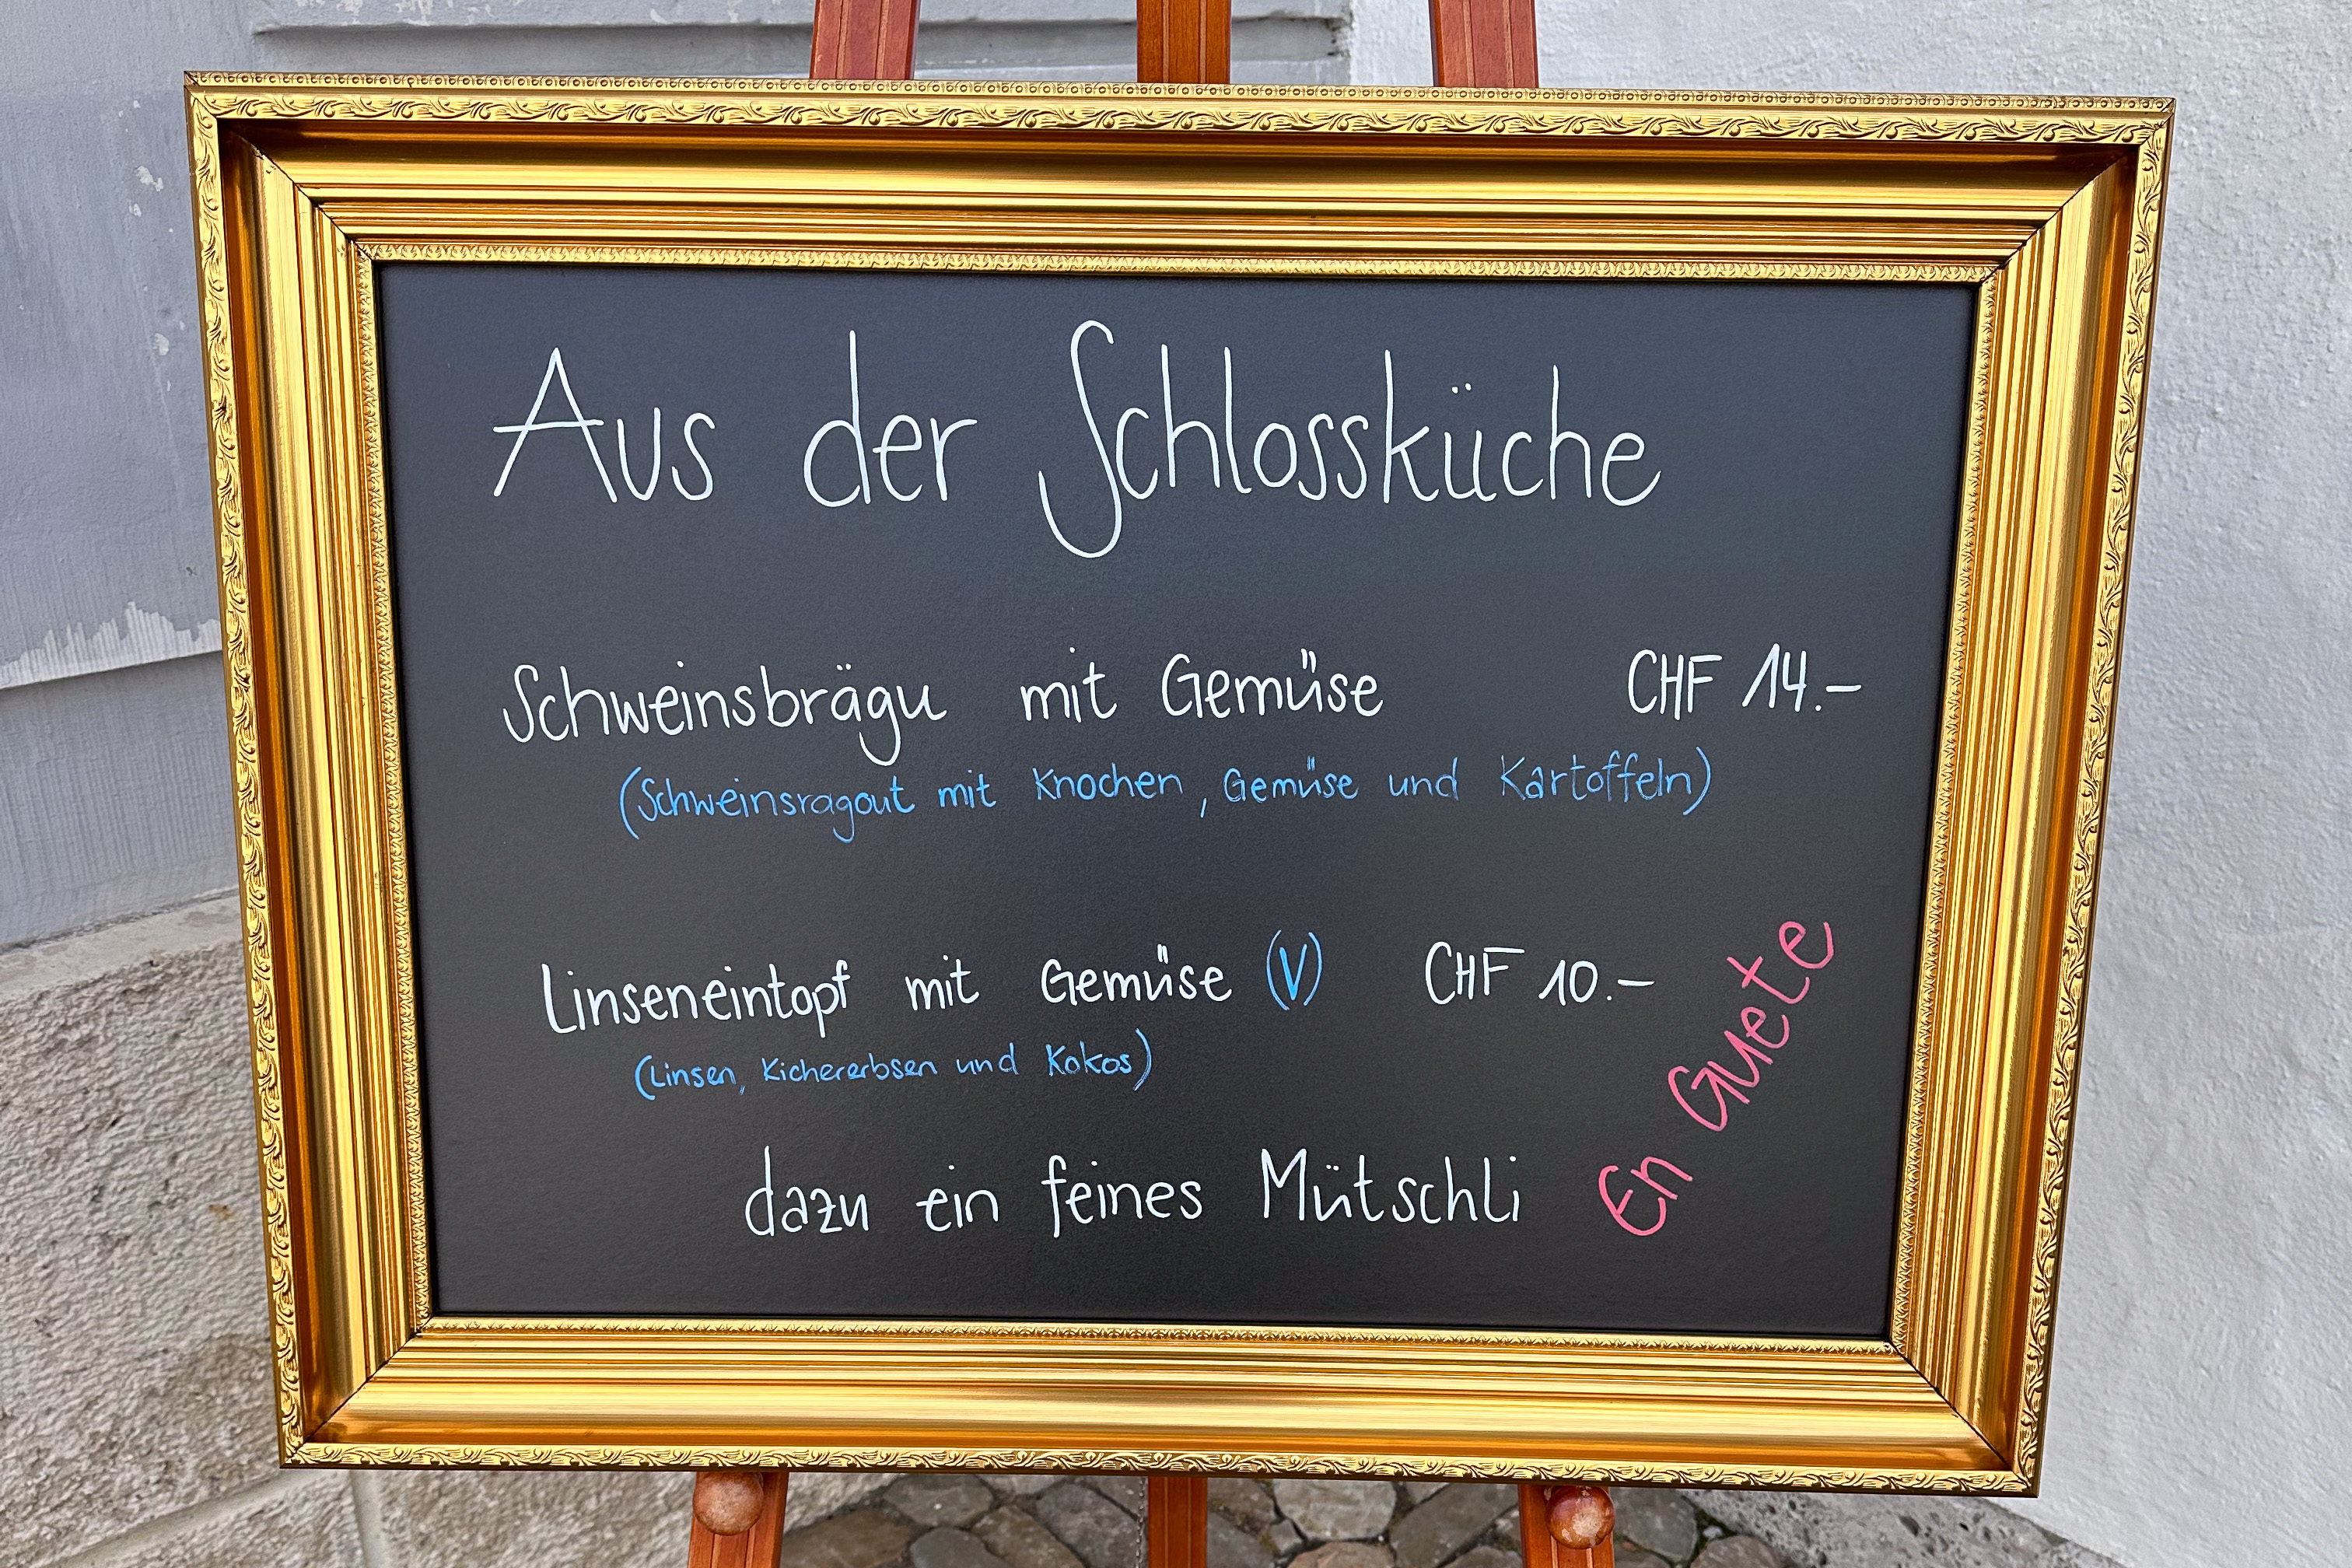 Aus der Schlossküche
Schweinsbrägu mit Gemüse CHF 14.–
(Schweinsragout mit Knochen, Gemüse und Kartoffeln)
Linseneintopf mit Gemüse (V) CHF 10.–
(Linsen, Kichererbsen und Kokos)
dazu ein feines Mütschli
En Guete